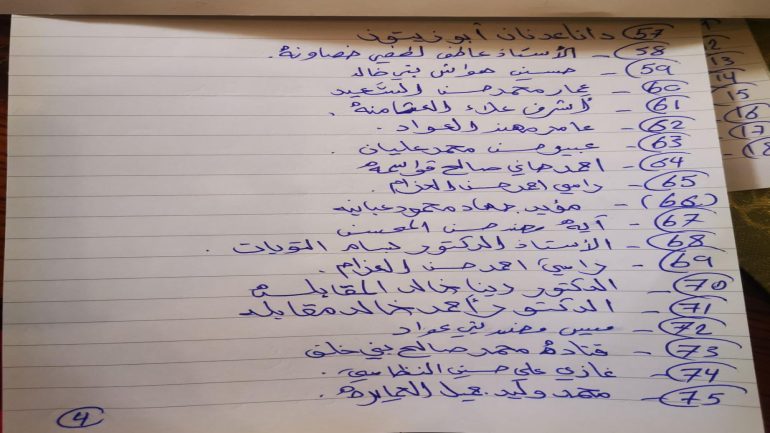 57 دانا عدنان أبو زيتون
58 - الأستاذ عاطف لطفي خصاونة.
59 - حسين هواش بني خالد
60 - عمار محمد حسن السعيد
61 - أشرف علاء العثامنة.
62 - عامر مهند العواد.
63 - حسن محمد عليان.
64 - احمد هاني صالح قواسمة
65 - رامي احمد حسن العزام.
(66) - مؤيد جهاد محمود عبابنه
67 - آية حسن المحسن
68 - الأستاذ الدكتور بسام.
69 - رامي احمد حسن العزام.
70 - الدكتور دينا خالد المقابلة
71 - الدكتور احمد خالد مقابله
72 - ميس مهند بني عواد
73 - قتادة محمد صالح بني خلف
74 - غازي علي حسين النظامي.
75 - محمد وليد جميل العمايرة.
4
13
14
15
16
17
18